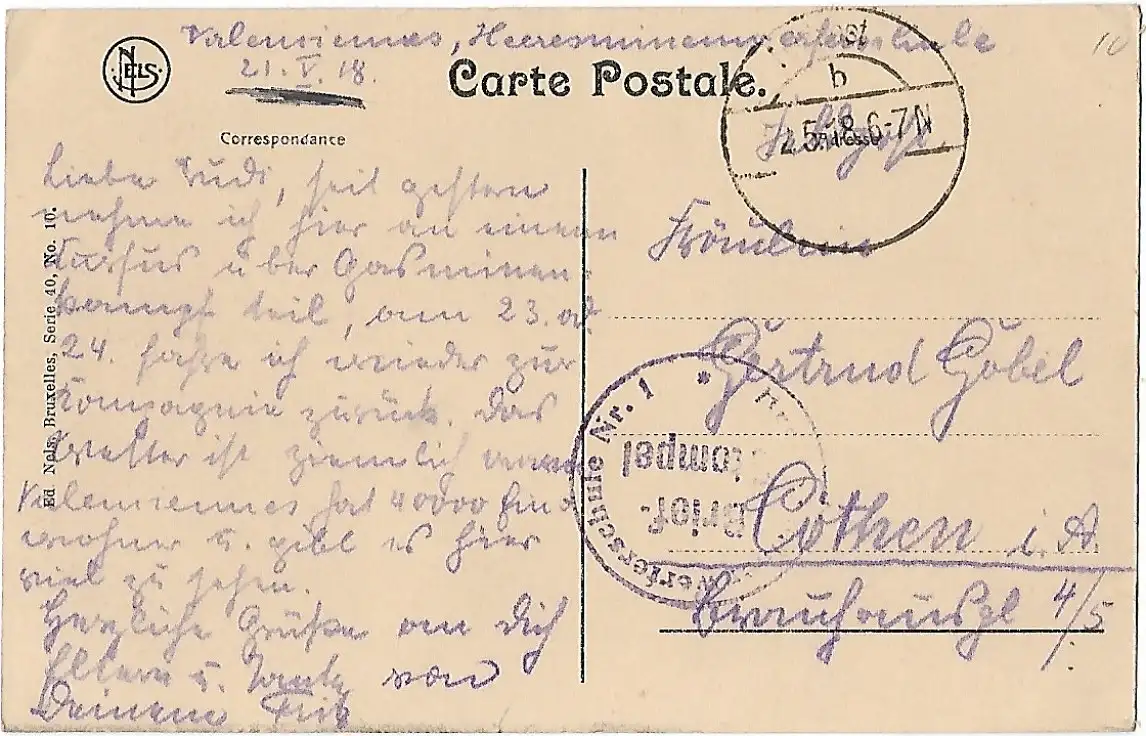 Valenciennes, Heeresminenwerferschule
21. V. 18.
NELS
Carte Postale.
10
Correspondance
Adresse
Feldpost.
b
5.18.6-7N
Liebe Trudi, seit gestern
nehme ich hier an einem
Kursus über Gasminen-
kampf teil, am 23. od.
24. fahre ich wieder zur
Kompagnie zurück. Das
Wetter ist ziemlich warm
Valenciennes hat 40000 Ein-
wohner u. gibt es hier
viel zu sehen.
Herzliche Grüße an Dich
Eltern u. Tante von
Deinem Fritz
Ed. Nels, Bruxelles, Serie 40, No. 10.
Fräulein
Gertrud Göbel
Cöthen i. A.
4/5
werferschule Nr. 1 *
Brief-
stempel